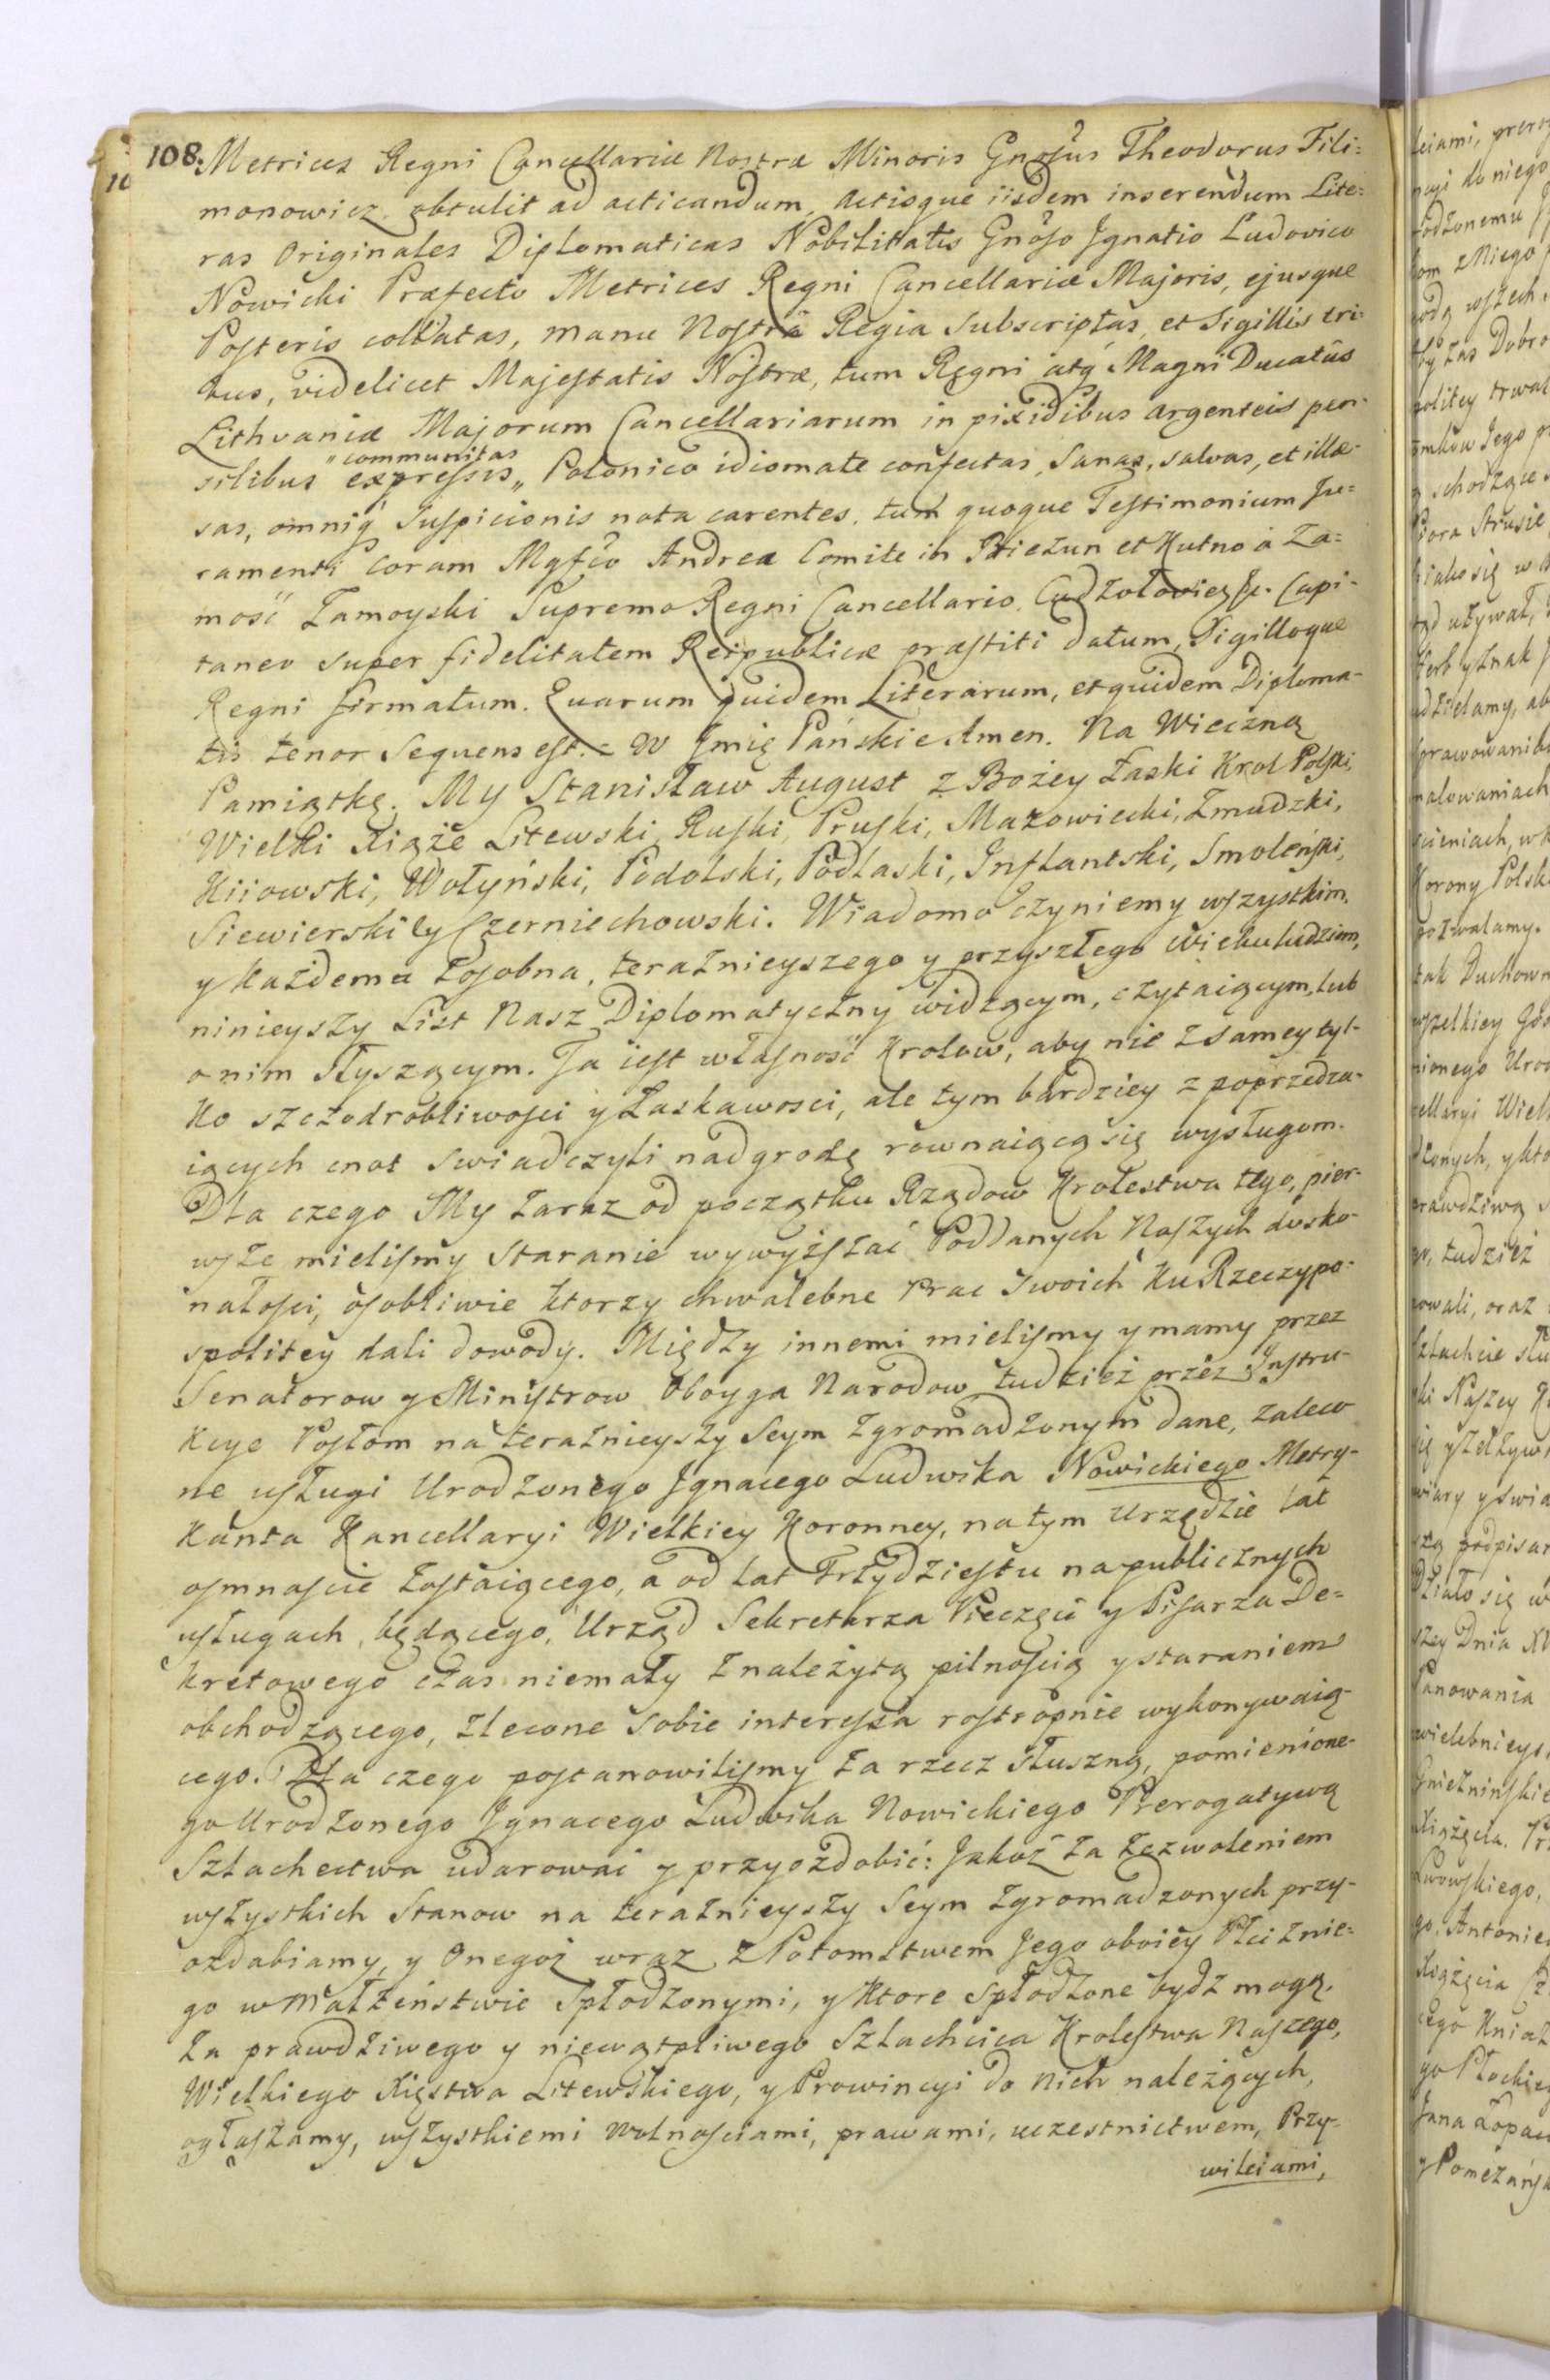 108. Metrices Regni Cancellariæ Nostræ Minoris Gnosus Theodorus Fili=
monowicz obtulit ad acticandum, actisque iisdem inserendum Lite=
ras Originales Diplomaticas Nobilitatis Gnoso Jgnatio Ludovico
Nowicki Præfecto Metrices Regni Cancellariæ Majoris, ejusque
Posteris collatas, manu Nostrâ Regia subscriptas, et Sigillis tri-
bus, videlicet Majestatis Nostræ, tum Regni atq Magni Ducatûs
Lithvaniæ Majorum Cancellariarum in pixidibus argenteis pen-
communitas
silibus expressis „ Polonico idiomate confectas, Sanas, salvas, et illæ-
sas, omniq Suspicionis nota carentes, tum quoque Testimonium Ju=
ramenti coram Mgfco Andrea Comite in Bieżun et Kutno à Za=
mość Zamoyski Supremo Regni Cancellario, Capi-
taneo super fidelitatem Reipublicæ præstiti datum, Sigilloque
Regni firmatum. Quarum quidem Literarum, et quidem Diploma-
tis tenor Sequens est. = W Jmię Pańskie Amen. Na Wieczną
Pamiątkę. My Stanisław August z Bożey Łaski Krol Polski,
Wielki Xiąże Litewski, Ruski, Pruski, Mazowiecki, Zmudzki,
Kiiowski, Wołyński, Podolski, Podlaski, Jnflantski, Smoleński,
Siewierski y Czerniechowski. Wiadomo czyniemy wszystkim,
y każdemu zosobna, teraznieyszego y przyszłego wieku ludziom,
ninieyszy List Nasz Diplomatyczny widzącym, czytaiącym, lub
o nim słyszącym. Ta iest własność Krolow, aby nie z samey tyl-
ko szczodrobliwosci y Łaskawosci, ale tym bardziey z poprzedza-
iących cnot swiadczyli nadgrodę rownaiącą się wysługom.
Dla czego My zaraz od początku Rządow Krolestwa tego, pier-
wsze mielismy staranie wywyższać Poddanych Naszych dosko-
nałosci, osobliwie ktorzy chwalebne Prac swoich ku Rzeczypo-
spolitey dali dowody. Między innemi mielismy y mamy przez
Senatorow y Ministrow Oboyga Narodow tudzież przez Jnstru-
kcye Posłom na teraznieyszy Seym zgromadzonym dane, zalec
ne usługi Urodzonego Jgnacego Ludwika Nowickiego Metry-
kanta Kancellaryi Wielkiey Koronney, na tym Urzędzie lat
osmnascie zostaiącego, a od lat Trzydziestu na publicznych
usługach, będącego, Urząd Sekretarza Pieczęci y Pisarza De=
kretowego czas niemały z należytą pilnoscią y staraniem
obchodzącego, zlecone sobie interessa rostropnie wykonywaią-
cego. Dla czego postanowilismy za rzecz słuszną, pomienione-
go Urodzonego Jgnacego Ludwika Nowickiego Prerogatywą
Szlachectwa udarować y przyozdobić: Jakoż za zezwoleniem
wszystkich Stanow na teraznieyszy Seym zgromadzonych przy-
ozdabiamy, y Onegoż wraz z Potomstwem Jego oboiey Płci z nie-
go w Małżeństwie spłodzonymi, y ktore spłodzone bydz mogą,
za prawdziwego y niewątpliwego Szlachcica Krolestwa Naszego,
Wielkiego Xięstwa Litewskiego, y Prowincyi do Nich należących,
ogłaszamy, wszystkiemi Wolnosciami, prawami, uczestnictwem, Przy-
wileiami,